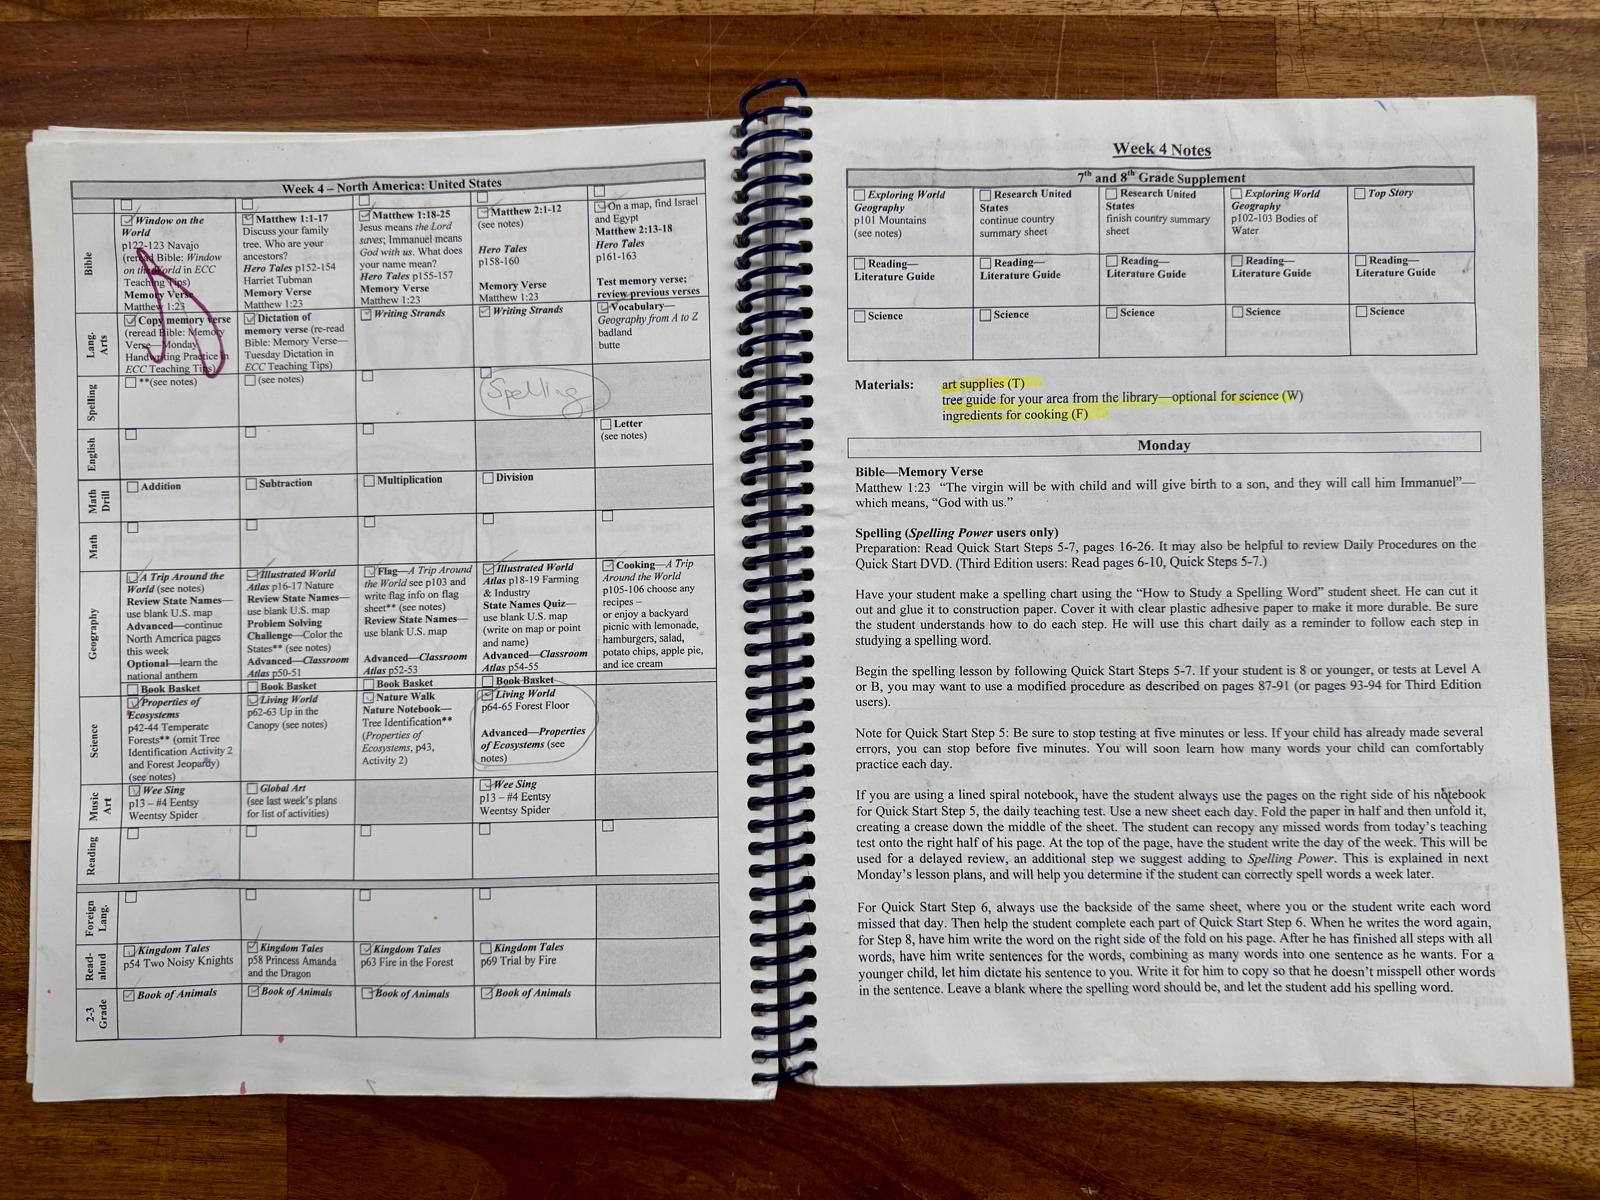 Week 4 – North America: United States
Bible
Window on the
World
p122-123 Navajo
(reread Bible: Window
on the World in ECC
Teaching Tips)
Memory Verse
Matthew 1:23
Matthew 1:1-17
Discuss your family
tree. Who are your
ancestors?
Hero Tales p152-154
Harriet Tubman
Memory Verse
Matthew 1:23
Matthew 1:18-25
Jesus means the Lord
saves; Immanuel means
God with us. What does
your name mean?
Hero Tales p155-157
Memory Verse
Matthew 1:23
Matthew 2:1-12
(see notes)
Hero Tales
p158-160
Memory Verse
Matthew 1:23
On a map, find Israel
and Egypt
Matthew 2:13-18
Hero Tales
p161-163
Test memory verse;
review previous verses
Lang.
Arts
Copy memory verse
(reread Bible: Memory
Verse—Monday
Handwriting Practice in
ECC Teaching Tips)
Dictation of
memory verse (re-read
Bible: Memory Verse—
Tuesday Dictation in
ECC Teaching Tips)
Writing Strands
Writing Strands
Vocabulary—
Geography from A to Z
badland
butte
Spelling
**(see notes)
(see notes)
Spelling
English
Letter
(see notes)
Math
Drill
Addition
Subtraction
Multiplication
Division
Math
Geography
A Trip Around the
World (see notes)
Review State Names—
use blank U.S. map
Advanced—continue
North America pages
this week
Optional—learn the
national anthem
Illustrated World
Atlas p16-17 Nature
Review State Names—
use blank U.S. map
Problem Solving
Challenge—Color the
States** (see notes)
Advanced—Classroom
Atlas p50-51
Flag—A Trip Around
the World see p103 and
write flag info on flag
sheet** (see notes)
Review State Names—
use blank U.S. map
Advanced—Classroom
Atlas p52-53
Illustrated World
Atlas p18-19 Farming
& Industry
State Names Quiz—
use blank U.S. map
(write on map or point
and name)
Advanced—Classroom
Atlas p54-55
Cooking—A Trip
Around the World
p105-106 choose any
recipes –
or enjoy a backyard
picnic with lemonade,
hamburgers, salad,
potato chips, apple pie,
and ice cream
Book Basket
Book Basket
Book Basket
Book Basket
Science
Properties of
Ecosystems
p42-44 Temperate
Forests** (omit Tree
Identification Activity 2
and Forest Jeopardy)
(see notes)
Living World
p62-63 Up in the
Canopy (see notes)
Nature Walk
Nature Notebook—
Tree Identification**
(Properties of
Ecosystems, p43,
Activity 2)
Living World
p64-65 Forest Floor
Advanced—Properties
of Ecosystems (see
notes)
Music
Art
Wee Sing
p13 – #4 Eentsy
Weentsy Spider
Global Art
(see last week's plans
for list of activities)
Wee Sing
p13 – #4 Eentsy
Weentsy Spider
Reading
Foreign
Lang.
Read-
aloud
Kingdom Tales
p54 Two Noisy Knights
Kingdom Tales
p58 Princess Amanda
and the Dragon
Kingdom Tales
p63 Fire in the Forest
Kingdom Tales
p69 Trial by Fire
2-3
Grade
Book of Animals
Book of Animals
Book of Animals
Book of Animals
Week 4 Notes
7th and 8th Grade Supplement
Exploring World
Geography
p101 Mountains
(see notes)
Research United
States
continue country
summary sheet
Research United
States
finish country summary
sheet
Exploring World
Geography
p102-103 Bodies of
Water
Top Story
Reading—
Literature Guide
Reading—
Literature Guide
Reading—
Literature Guide
Reading—
Literature Guide
Reading—
Literature Guide
Science
Science
Science
Science
Science
Materials: art supplies (T)
tree guide for your area from the library—optional for science (W)
ingredients for cooking (F)
Monday
Bible—Memory Verse
Matthew 1:23 “The virgin will be with child and will give birth to a son, and they will call him Immanuel”—
which means, “God with us.”
Spelling (Spelling Power users only)
Preparation: Read Quick Start Steps 5-7, pages 16-26. It may also be helpful to review Daily Procedures on the
Quick Start DVD. (Third Edition users: Read pages 6-10, Quick Steps 5-7.)
Have your student make a spelling chart using the “How to Study a Spelling Word” student sheet. He can cut it
out and glue it to construction paper. Cover it with clear plastic adhesive paper to make it more durable. Be sure
the student understands how to do each step. He will use this chart daily as a reminder to follow each step in
studying a spelling word.
Begin the spelling lesson by following Quick Start Steps 5-7. If your student is 8 or younger, or tests at Level A
or B, you may want to use a modified procedure as described on pages 87-91 (or pages 93-94 for Third Edition
users).
Note for Quick Start Step 5: Be sure to stop testing at five minutes or less. If your child has already made several
errors, you can stop before five minutes. You will soon learn how many words your child can comfortably
practice each day.
If you are using a lined spiral notebook, have the student always use the pages on the right side of his notebook
for Quick Start Step 5, the daily teaching test. Use a new sheet each day. Fold the paper in half and then unfold it,
creating a crease down the middle of the sheet. The student can recopy any missed words from today's teaching
test onto the right half of his page. At the top of the page, have the student write the day of the week. This will be
used for a delayed review, an additional step we suggest adding to Spelling Power. This is explained in next
Monday's lesson plans, and will help you determine if the student can correctly spell words a week later.
For Quick Start Step 6, always use the backside of the same sheet, where you or the student write each word
missed that day. Then help the student complete each part of Quick Start Step 6. When he writes the word again,
for Step 8, have him write the word on the right side of the fold on his page. After he has finished all steps with all
words, have him write sentences for the words, combining as many words into one sentence as he wants. For a
younger child, let him dictate his sentence to you. Write it for him to copy so that he doesn't misspell other words
in the sentence. Leave a blank where the spelling word should be, and let the student add his spelling word.